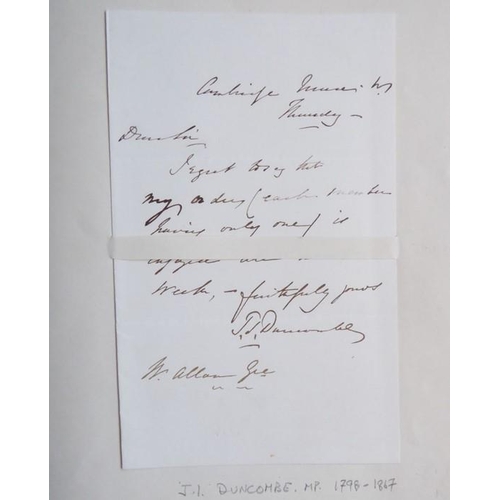 Thursday –
Dear Sir
I regret to say that
my orders (each member
having only one) is
engaged
week, – faithfully yours
T.S. Duncombe
W. Allan Esq
J.I. DUNCOMBE. MP. 1798–1867